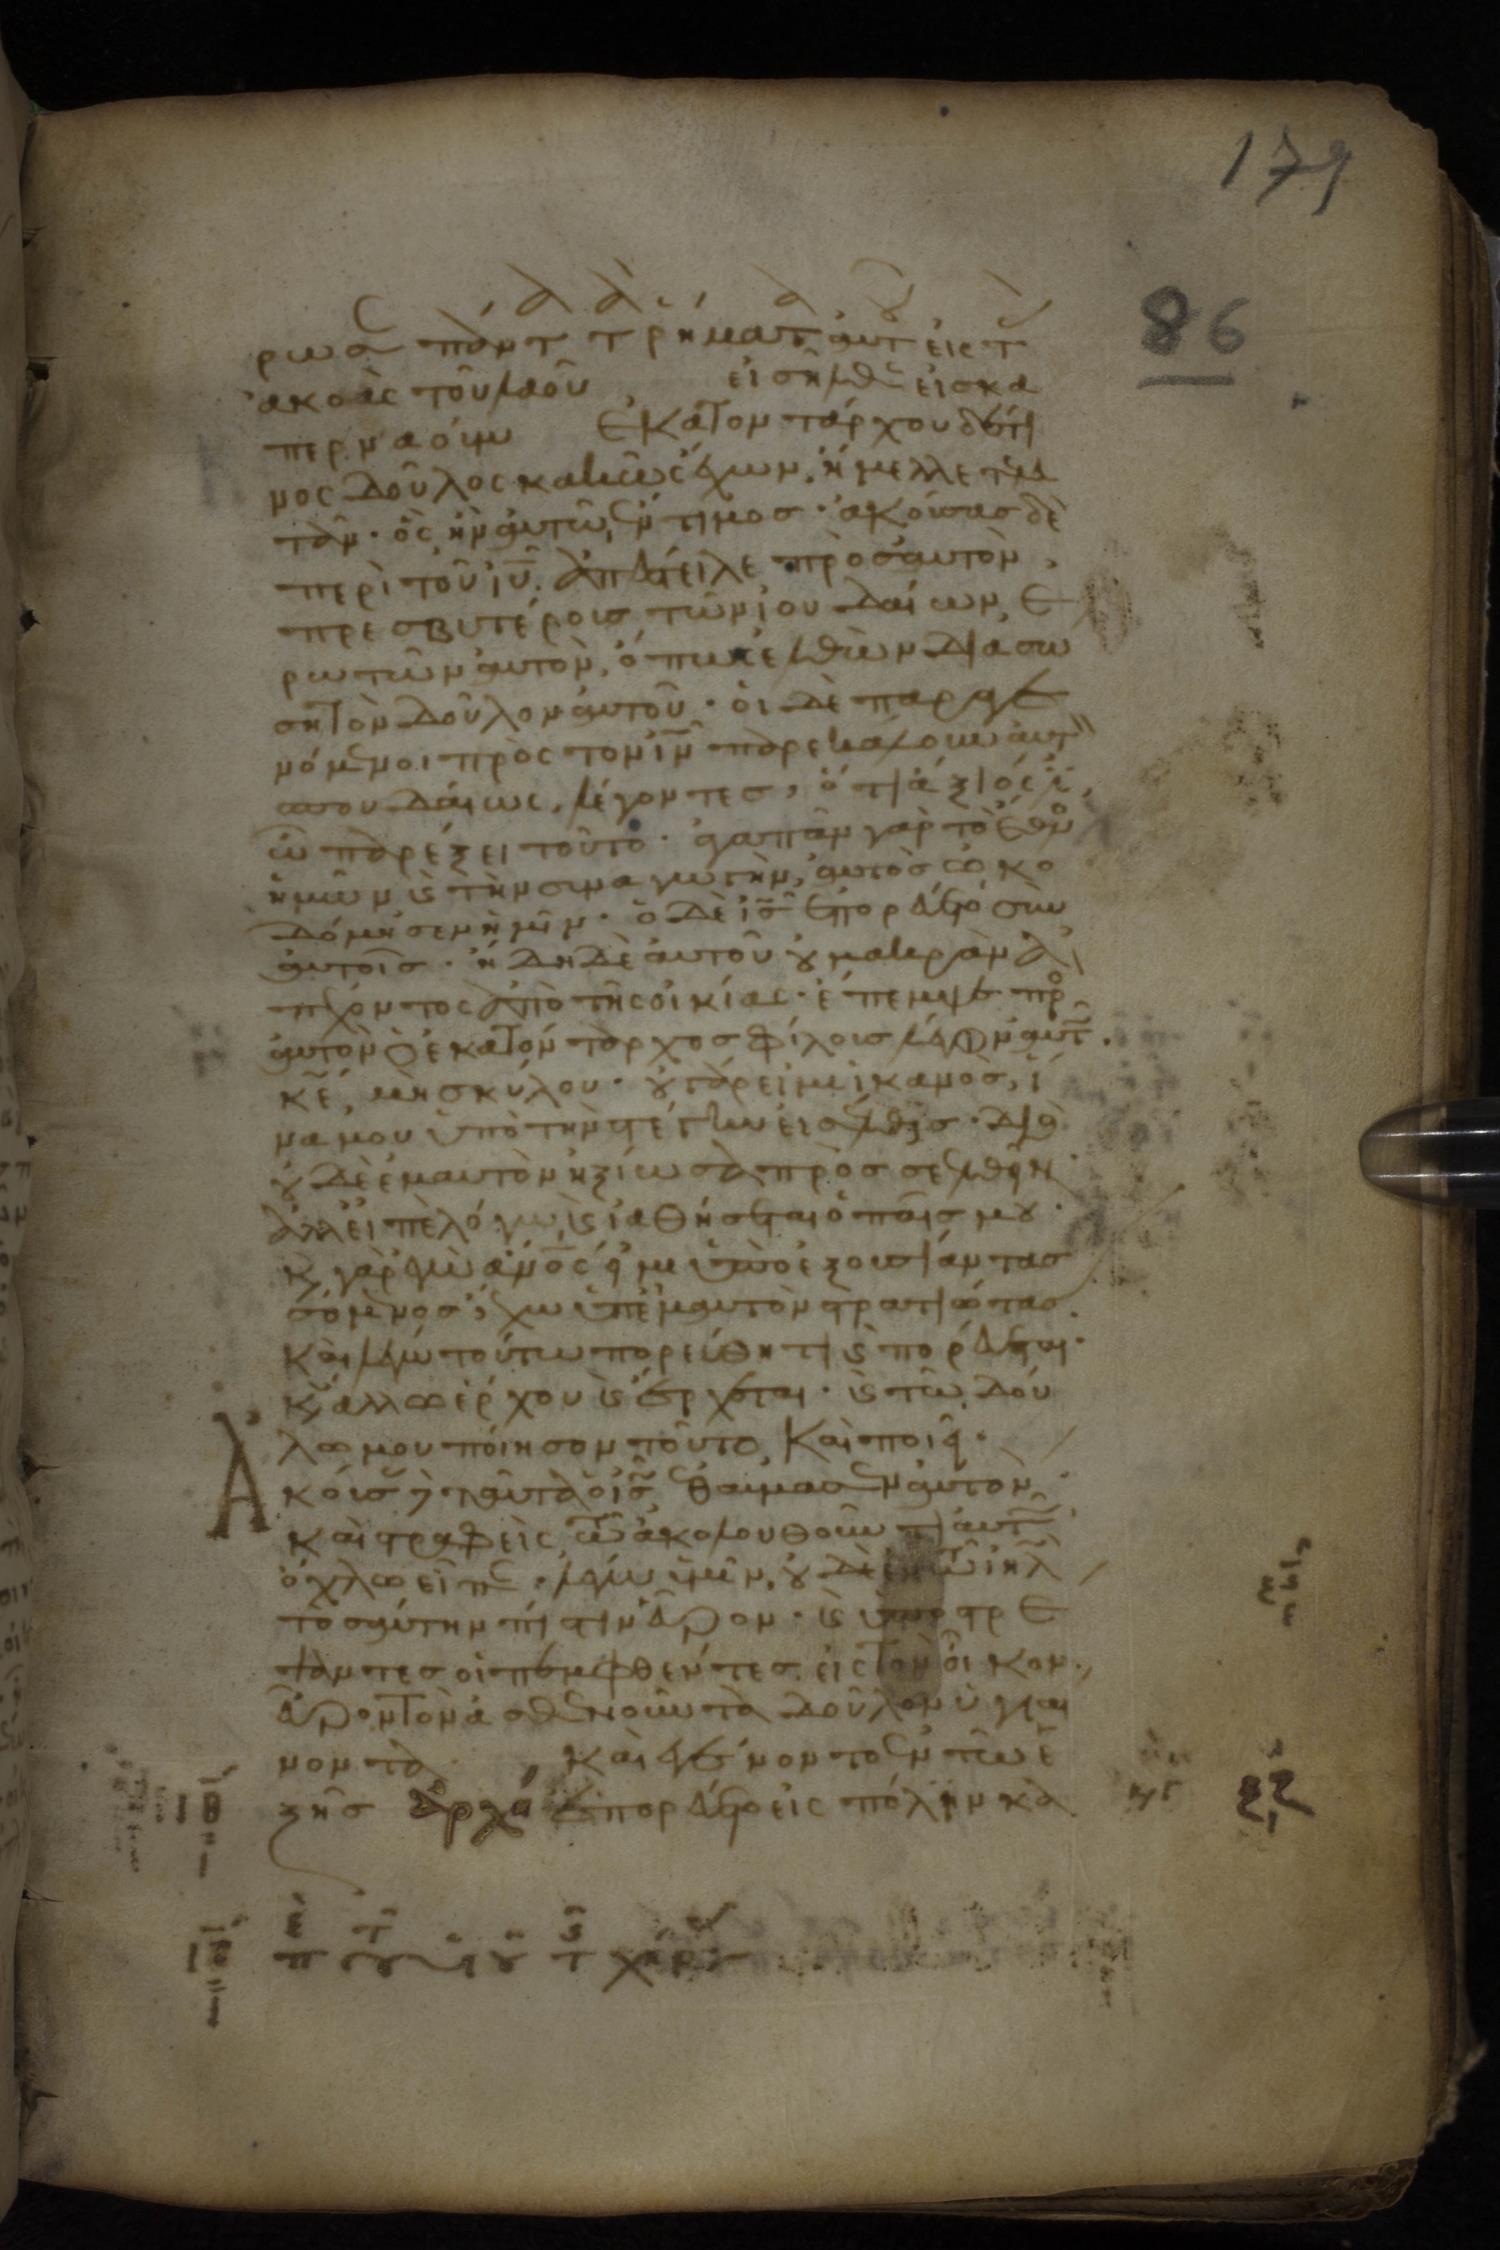 179
86
ρωσε πάντα τὰ ρήματα αὐτοῦ εἰς τ
ἀκοὰς τοῦ λαοῦ εἰσῆλθεν εἰς κα
περναούμ Ἑκατοντάρχου δέ τι
νος δοῦλος κακῶς ἔχων, ἤμελλε τελευ
τᾶν· ὃς ἦν αὐτῶ ἔντιμος· ἀκούσας δὲ
περὶ τοῦ ἰῦ. ἀπέστειλε πρὸς αὐτὸν,
πρεσβυτέρους τῶν ἰουδαίων, ἐ
ρωτῶν αὐτὸν, ὅπως ἐλθὼν διασώ
ση τὸν δοῦλον αὐτοῦ· οἱ δὲ παραγε
νόμενοι πρὸς τὸν ἰν παρεκάλουν αὐτ
σπουδαίως, λέγοντες, ὅτι ἄξιός ἐ,
ὧ παρέξει τοῦτο· ἀγαπᾶν γὰρ τὸ ἔθνο
ἡμῶν καὶ τὴν συναγωγὴν, αὐτὸς ὠκο
δόμησεν ἡμῖν· ὁ δὲ ἰς ἐπορεύετο σὺν
αὐτοῖς· ἤδη δὲ αὐτοῦ οὐ μακρὰν ἀ
πέχοντος ἀπὸ τῆς οἰκίας· ἔπεμψε πρ
αὐτὸν ὁ ἑκατόνταρχος φίλους λέγων αὐτ.
κε, μὴ σκύλου· οὐ γάρ εἰμι ἱκανὸς, ἵ
να μου ὑπὸ τὴν στέγην εἰσέλθης· διὸ
οὐδὲ ἐμαυτὸν ἠξίωσα πρός σε ἐλθεῖν·
ἀλλ εἰπὲ λόγω, καὶ ἰαθήσεται ὁ παῖς μου·
καὶ γὰρ ἐγὼ ἄνος εἰμι ὑπὸ ἐξουσίαν τασ
σόμενος, ἔχων ὑπ ἐμαυτὸν στρατιώτας.
καὶ λέγω τούτω πορεύθητι καὶ πορεύεται·
καὶ ἄλλω ἔρχου καὶ ἔρχεται· καὶ τῶ δού
λω μου ποίησον τοῦτο, καὶ ποιεῖ·
Ἀκούσας δὲ ταῦτα ὁ ἰς ἐθαύμασεν αὐτὸν,
καὶ στραφεὶς, τῶ ἀκολουθοῦντι αὐτῶ
ὄχλω εἶπε· λέγω ὑμῖν, οὐδὲ ἐν τῶ ἰηλ
τοσαύτην πίστιν εὗρον· καὶ ὑποστρέ
ψαντες οἱ πεμφθέντες εἰς τὸν οἶκον,
εὗρον τὸν ἀσθενοῦντα δοῦλον ὑγιαί
νοντα. Καὶ ἐγένοντο ἐν τῶ ἑ
ξῆς ἀρχ ἐπορεύετο εἰς πόλιν κα